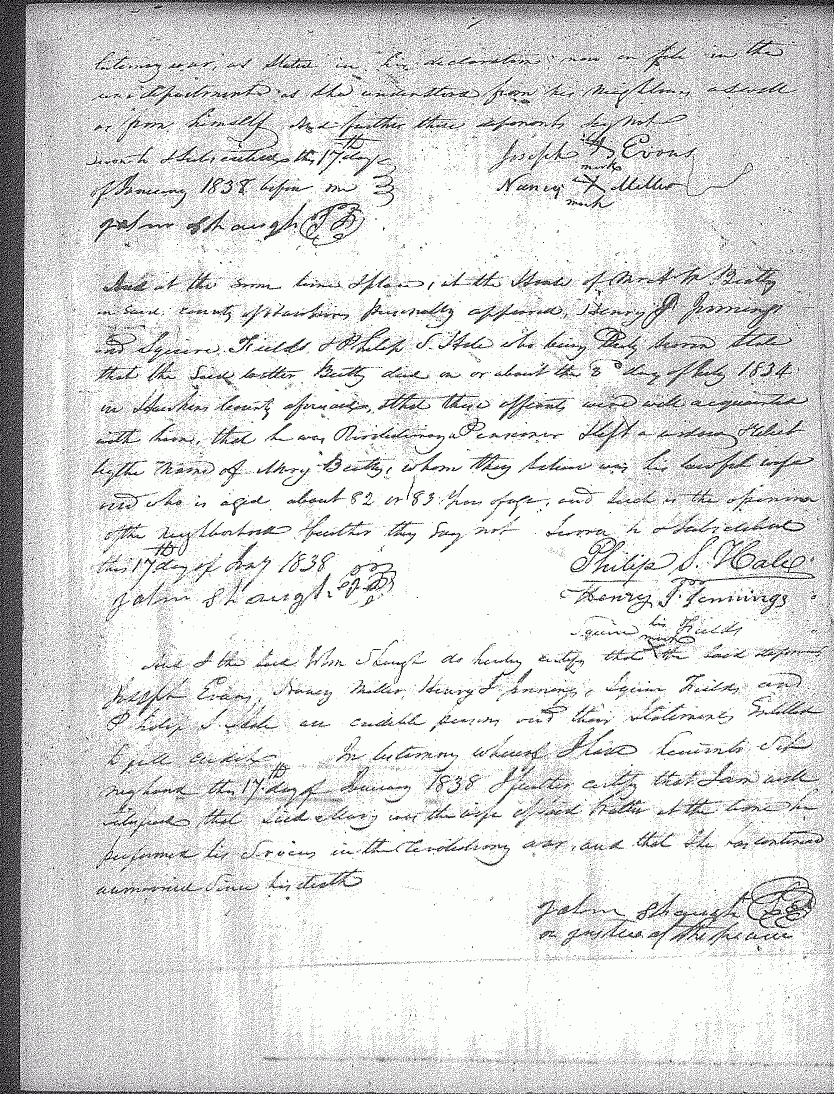 war, as stated in his declaration now on file in the
war department as she understood from his neighbours as well
as from himself And further these deponents say not
Sworn to & Subscribed this 17th day
of January 1838 before me
Joseph his mark Evans
Nancy her X mark Miller
John Shaugh J P
And at the same time & place, at the House of W Beatty
in said county of Hawkins personally appeared, Henry J Jennings
and Squire Fields & Philip S. Hale who being duly sworn State
that the Said Walter Beatty died on or about the 3d day of July 1834
in Hawkins County aforesaid, & that these affiants were well acquainted
with him, that he was Revolutionary Pensioner & left a widow & Relict
by the Name of Mary Beatty, whom they believe was his lawful wife
and who is aged about 82 or 83 years of age, and such is the opinion
of the neighborhood further they say not Sworn to & Subscribed
this 17th day of Jany 1838
John Shaugh J P
Philip S. Hale
Henry J. Jennings
Squire his mark Fields
And I the said Shaugh do hereby certify that the said deponents
Joseph Evans, Nancy Miller, Henry J Jennings, Squire Fields and
Philip S. Hale are credible persons and their Statements Entitled
to full credit In testimony whereof I have hereunto Set
my hand this 17th day of January 1838 I further certify that I am well
satisfied that said Mary was the wife of said Walter at the time he
performed his Services in the Revolutionary war, and that she has continued
unmarried Since his death
John Shaugh J P
justice of the peace